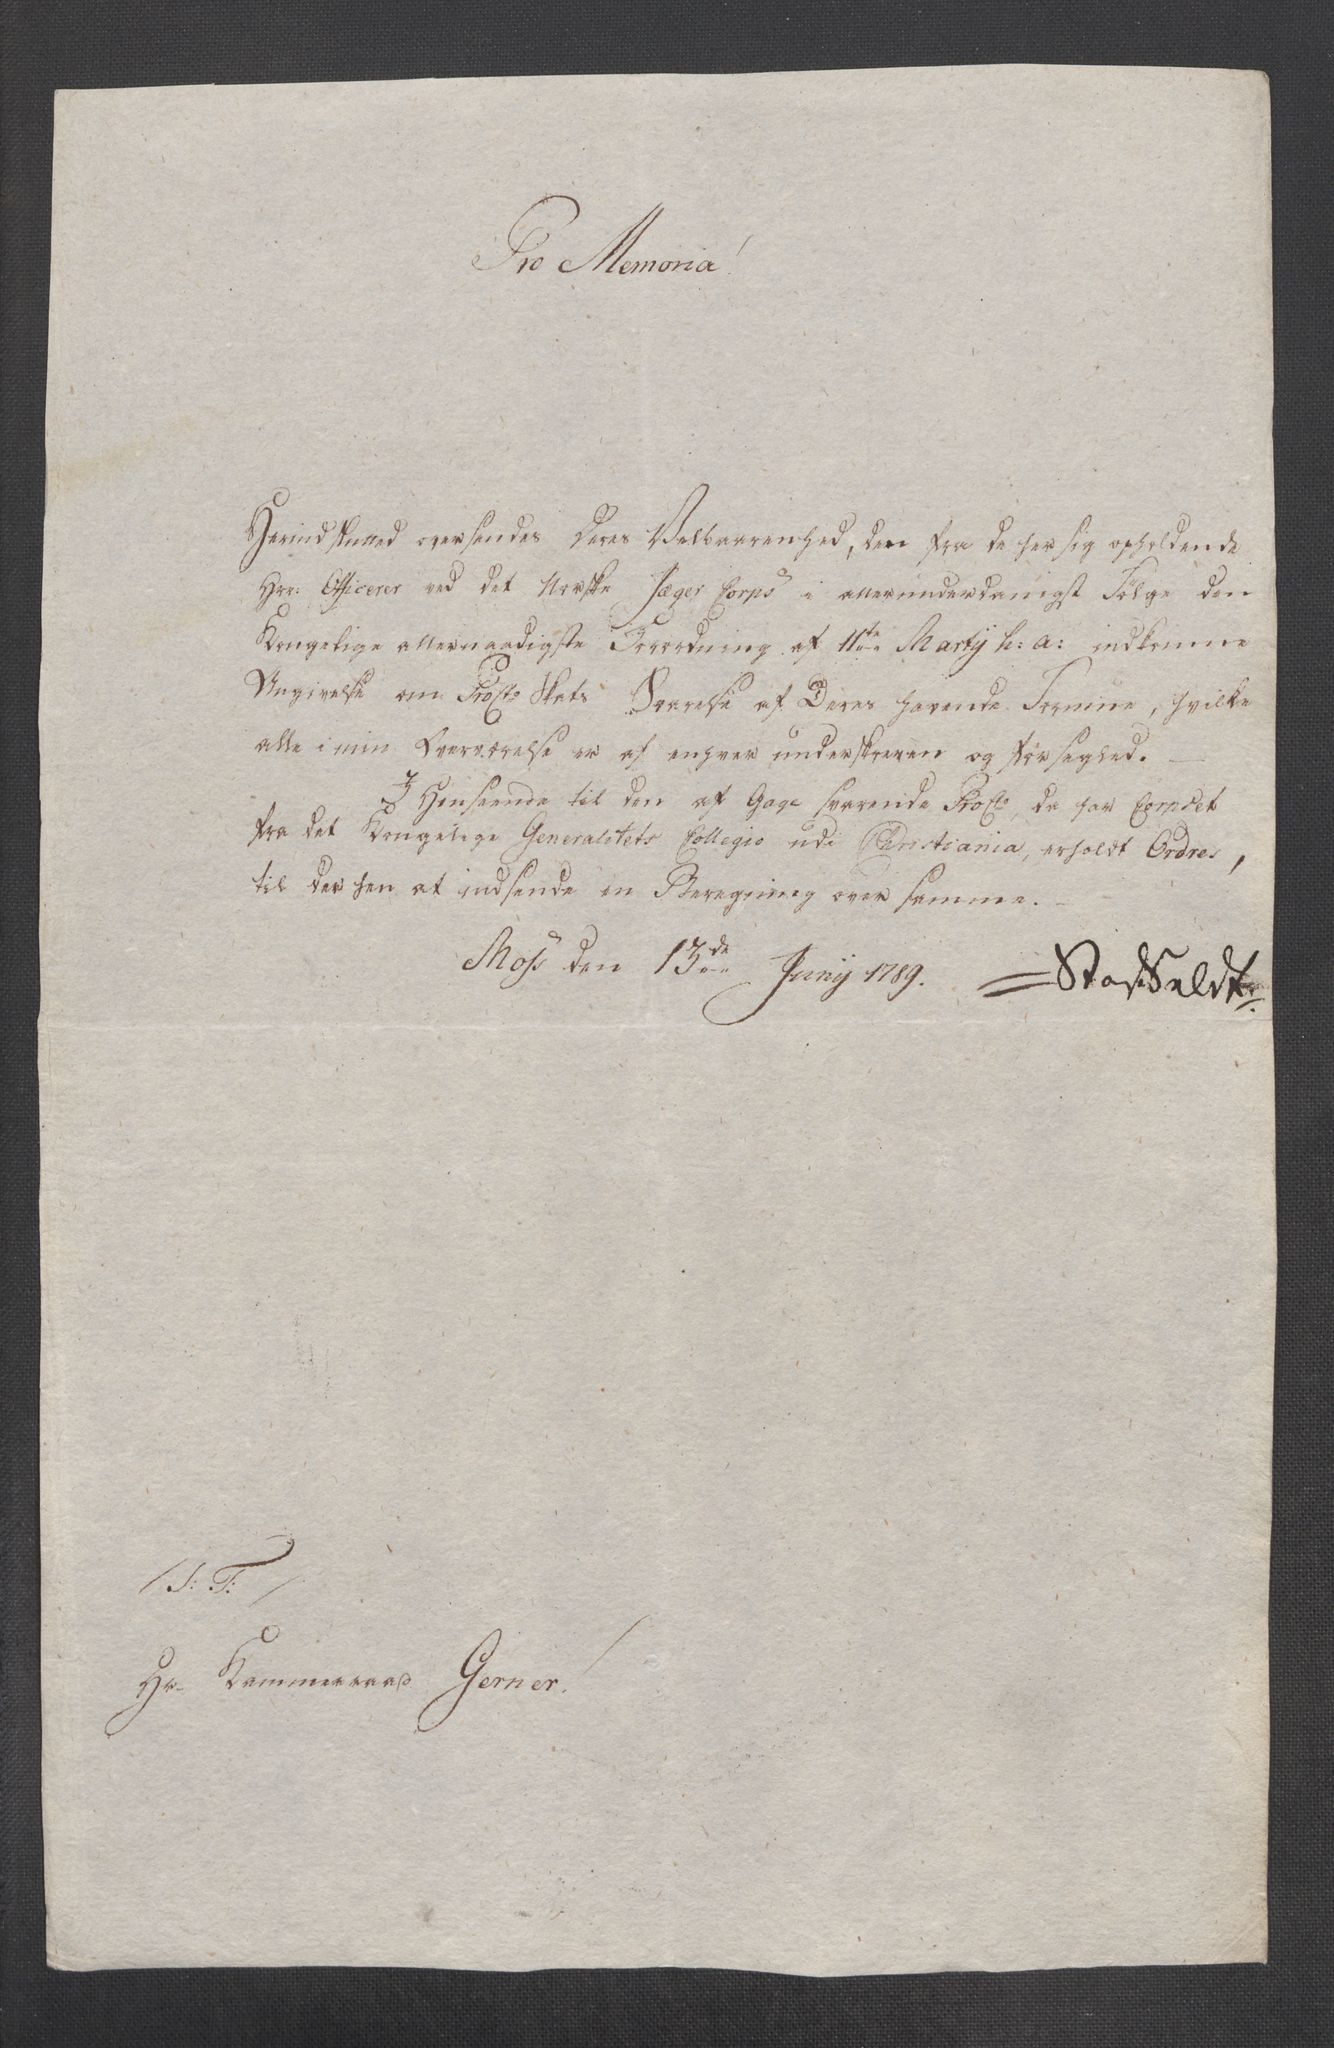 Pro Memoria!
Herindslutted oversendes Deres Velbaarenhed, den fra de her sig opholdende
Hrr: Officerer ved det Norske Jæger Corps i allerunderdanigst Følge den
Kongelige allernaadigste Forordning af 11te Martij h: a: indkomne
Angivelse om ProCto Skats Svarelse af Deres havende Formue, hvilke
alle i min Overværelse er af enhver underskreven og forseglet.
I Henseende til den af Gage svarende ProCto, da har Corpset
fra det Kongelige Generalitets Collegio udi Christiania, erholdt Ordres,
til der hen at indsende en Beregning over samme.
Moss den 13de Junij 1789. Staffeldt
/S: T:/
Hr Kammerraad Gerner!